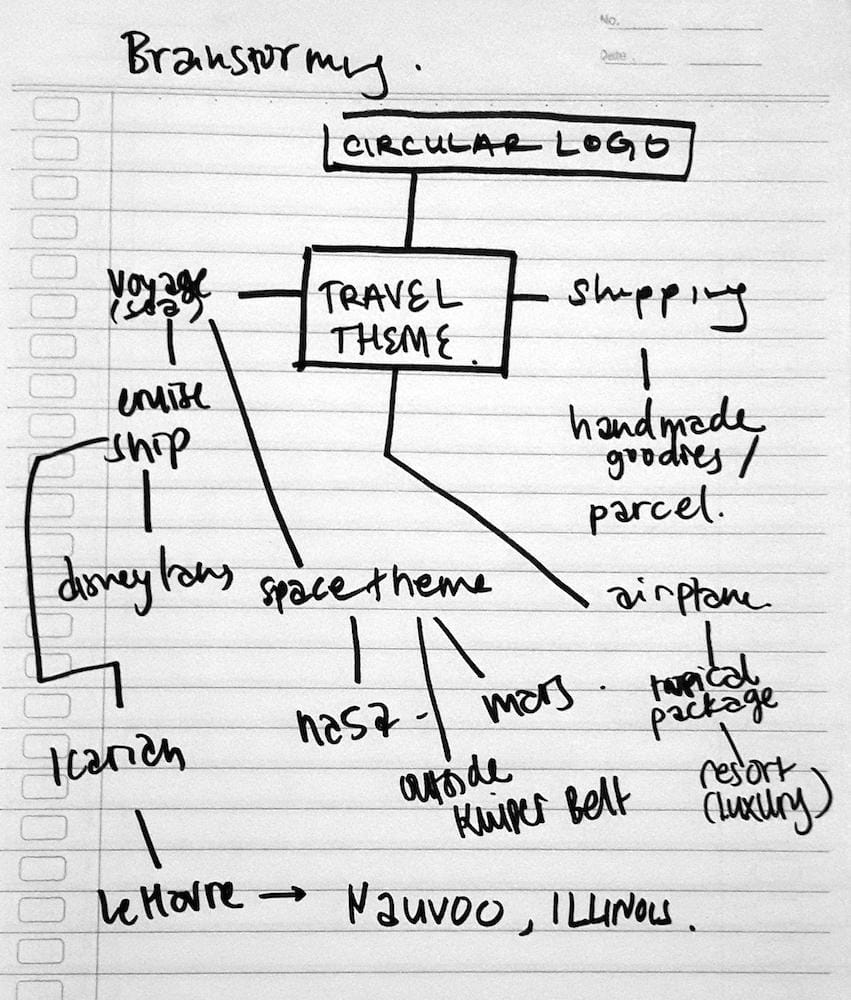 No.
Date
Brainstorming.
CIRCULAR LOGO
TRAVEL
THEME.
voyage
(sea)
cruise
ship
disney fans
Icarian
Le Havre → Nauvoo, ILLINOIS.
space theme
nasa
mars.
outside
Kuiper Belt
shipping
handmade
goodies /
parcel.
airplane.
tropical
package
resort
(luxury)